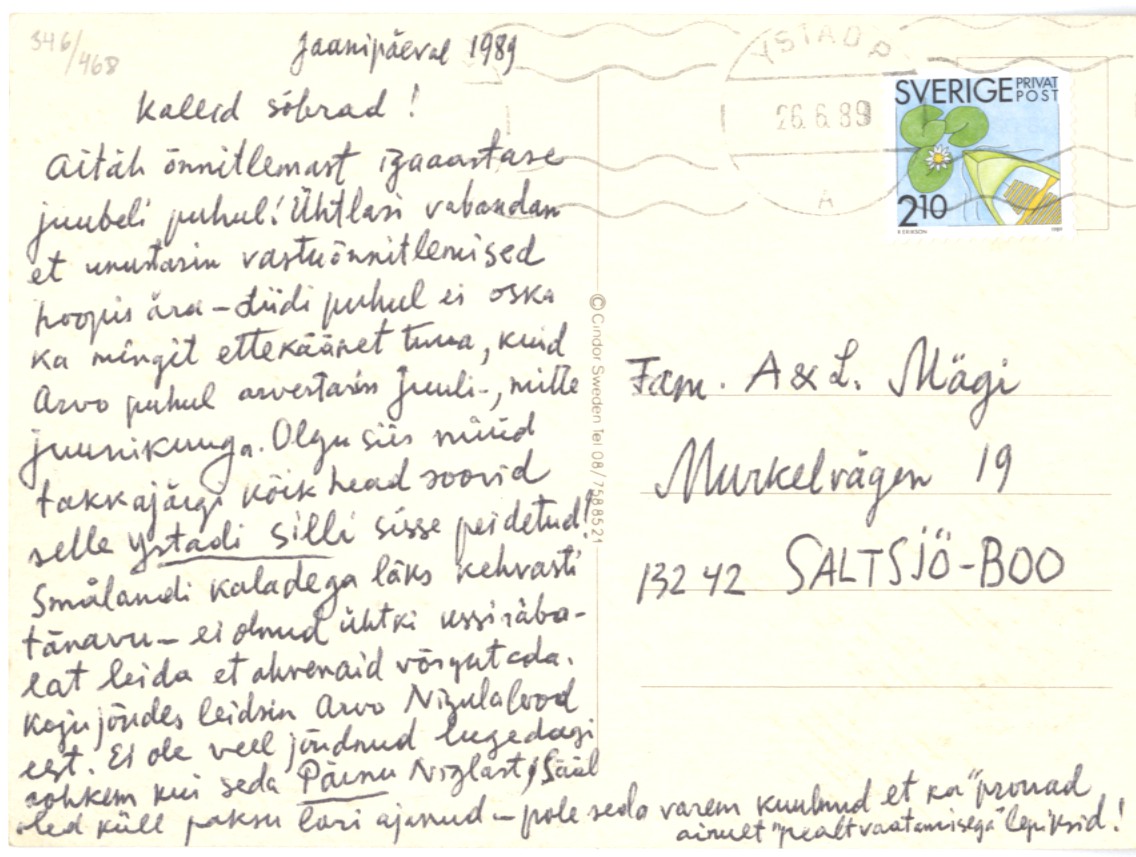 346/468
Jaanipäeval 1989
Kallid sõbrad!
Aitäh õnnitlemast igaaastase
juubeli puhul! Ühtlasi vabandan
et unustasin vastuõnnitlemised
hoopis ära – Liidi puhul ei oska
ka mingit ettekäänet tuua, kuid
Arvo puhul arvestasin Juuli-, mitte
juunikuuga. Olgu siis nüüd
takkajärgi kõik head soovid
selle Ystadi Silli sisse peidetud!
Smålandi kaladega läks kehvasti
tänavu – ei olnud ühtki ussiraba-
lat leida et ahvenaid võrgutada.
Koju jõudes leidsin Arvo
eest. Ei ole veel jõudnud lugedagi
rohkem kui seda Päinu Niglast, Sääl
oled küll paksu lori ajanud – pole seda varem kuulnud et ka "prouad
ainuet "pealtvaatamisega" lepiksid!
YSTAD P
26.6.89
A
SVERIGE PRIVAT
POST
2 10
© Cindor Sweden Tel 08/7588521
Fam. A & L. Mägi
Murkelvägen 19
132 42 SALTSJÖ-BOO